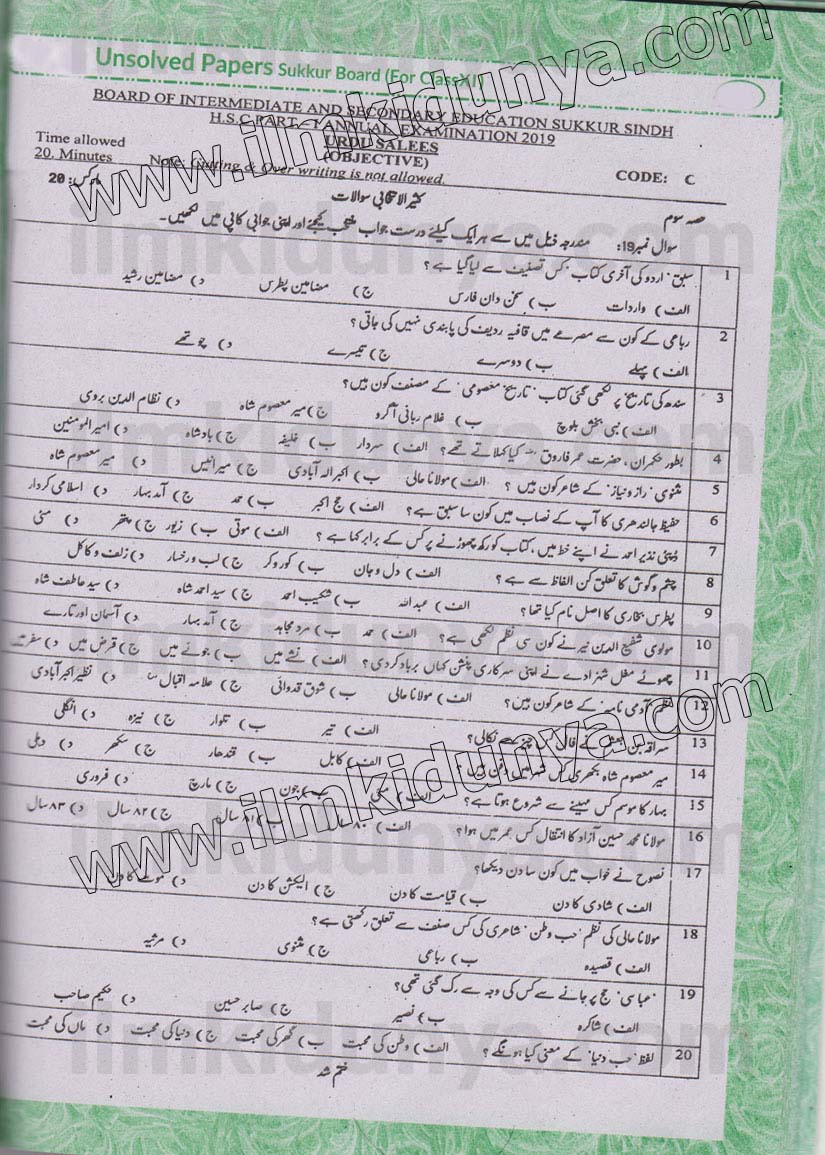 Unsolved Papers Sukkur Board (For Class XI)
BOARD OF INTERMEDIATE AND SECONDARY EDUCATION SUKKUR SINDH
H.S.C PART - I ANNUAL EXAMINATION 2019
Time allowed URDU SALEES
20. Minutes (OBJECTIVE)
Note: Cutting & Over writing is not allowed. CODE: C
کثیر الانتخابی سوالات مارکس: 20
حصہ سوم
سوال نمبر19: مندرجہ ذیل میں سے ہر ایک کیلئے درست جواب منتخب کیجئے اور اپنی جوابی کاپی میں لکھیں۔
1 سبق 'اردو کی آخری کتاب' کس تصنیف سے لیا گیا ہے؟
الف) واردات ب) سخن دان فارس ج) مضامین پطرس د) مضامین رشید
2 رباعی کے کون سے مصرعے میں قافیہ ردیف کی پابندی نہیں کی جاتی؟
الف) پہلے ب) دوسرے ج) تیسرے د) چوتھے
3 سندھ کی تاریخ پر لکھی گئی کتاب 'تاریخ معصومی' کے مصنف کون ہیں؟
الف) نبی بخش بلوچ ب) غلام ربانی آگرو ج) میر معصوم شاہ د) نظام الدین ہروی
4 بطور حکمران، حضرت عمر فاروق کیا کہلاتے تھے؟ الف) سردار ب) خلیفہ ج) بادشاہ د) امیر المومنین
5 مثنوی 'راز و نیاز' کے شاعر کون ہیں؟ الف) مولانا حالی ب) اکبر الہ آبادی ج) میر انیس د) میر معصوم شاہ
6 حفیظ جالندھری کا آپ کے نصاب میں کون سا سبق ہے؟ الف) حج اکبر ب) حمد ج) آمد بہار د) اسلامی کردار
7 ڈپٹی نذیر احمد نے اپنے خط میں، کتاب کو رکھ چھوڑنے پر کس کے برابر کہا ہے؟ الف) موتی ب) زیور ج) پتھر د) مٹی
8 چشم و گوش کا تعلق کن الفاظ سے ہے؟ الف) دل و جان ب) کور و کر ج) لب و رخسار د) زلف و کاکل
9 پطرس بخاری کا اصل نام کیا تھا؟ الف) عبداللہ ب) شکیب احمد ج) سید احمد شاہ د) سید عاطف شاہ
10 مولوی شفیع الدین نیر نے کون سی نظم لکھی ہے؟ الف) حمد ب) مرد مجاہد ج) آمد بہار د) آسمان اور تارے
11 چھوٹے مغل شہزادے نے اپنی سرکاری پنشن کہاں برباد کردی؟ الف) نشے میں ب) جوئے میں ج) قرض میں د) سفر میں
12 نظم 'آدمی نامہ' کے شاعر کون ہیں؟ الف) مولانا حالی ب) شوق قدوائی ج) علامہ اقبال د) نظیر اکبر آبادی
13 سراقہ بن جعشم نے فال کس چیز سے نکالی؟ الف) تیر ب) تلوار ج) نیزہ د) انگلی
14 میر معصوم شاہ بکھری کس شہر میں دفن ہیں؟ الف) کابل ب) قندھار ج) سکھر د) دہلی
15 بہار کا موسم کس مہینے سے شروع ہوتا ہے؟ الف) مئی ب) جون ج) مارچ د) فروری
16 مولانا محمد حسین آزاد کا انتقال کس عمر میں ہوا؟ الف) ۸۰ سال ب) ۸۱ سال ج) ۸۲ سال د) ۸۳ سال
17 نصوح نے خواب میں کون سا دن دیکھا؟
الف) شادی کا دن ب) قیامت کا دن ج) الیکشن کا دن د) موت کا دن
18 مولانا حالی کی نظم 'حب وطن' شاعری کی کس صنف سے تعلق رکھتی ہے؟
الف) قصیدہ ب) رباعی ج) مثنوی د) مرثیہ
19 'عباسی' حج پر جانے سے کس کی وجہ سے رک گئی تھی؟
الف) شاکرہ ب) نصیر ج) صابر حسین د) حکیم صاحب
20 لفظ 'حب دنیا' کے معنی کیا ہونگے؟ الف) وطن کی محبت ب) گھر کی محبت ج) دنیا کی محبت د) ماں کی محبت
ختم شد
www.ilmkidunya.com
www.ilmkidunya.com
ilmkidunya.com
ilmkidunya.com
ilmkidunya.com
ilmkidunya.com
ilmkidunya.com